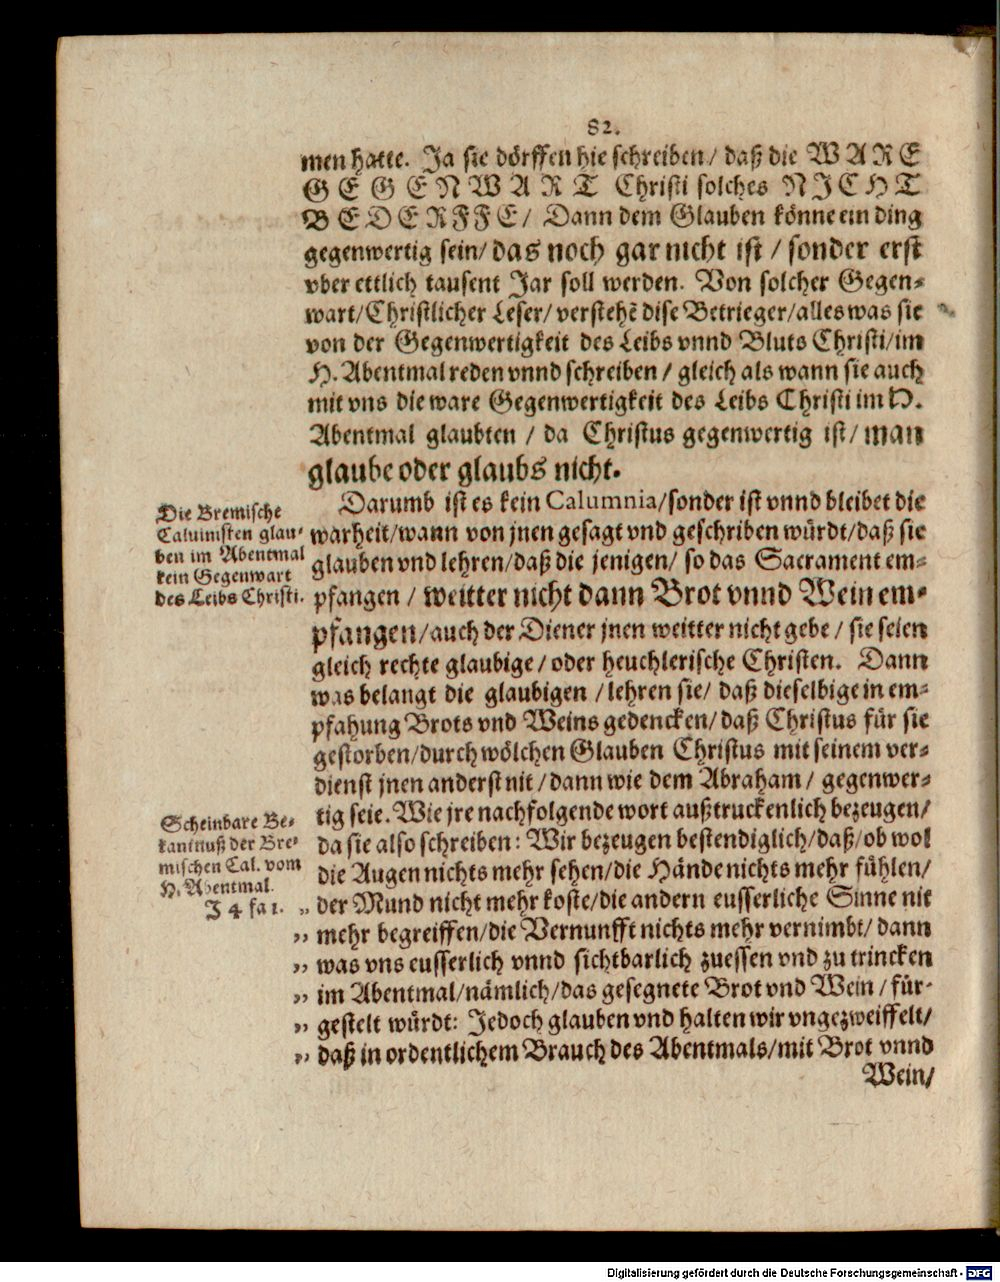 82.
men hatte. Ja sie dörffen hie schreiben/ daß die WARE
GEGENWART Christi solches NICHT
BEDERFFE/ Dann dem Glauben könne ein ding
gegenwertig sein/ das noch gar nicht ist / sonder erst
vber ettlich tausent Jar soll werden. Von solcher Gegen-
wart/Christlicher Leser/ verstehẽ dise Betrieger/alles was sie
von der Gegenwertigkeit des Leibs vnnd Bluts Christi/im
H. Abentmal reden vnnd schreiben / gleich als wann sie auch
mit vns die ware Gegenwertigkeit des Leibs Christi im H.
Abentmal glaubten / da Christus gegenwertig ist/ man
glaube oder glaubs nicht.
Darumb ist es kein Calumnia/sonder ist vnnd bleibet die
warheit/wann von jnen gesagt vnd geschriben würdt/daß sie
glauben vnd lehren/daß die jenigen/ so das Sacrament em-
pfangen / weitter nicht dann Brot vnnd Wein em-
pfangen/auch der Diener jnen weitter nicht gebe / sie seien
gleich rechte glaubige / oder heuchlerische Christen. Dann
was belangt die glaubigen / lehren sie/ daß dieselbige in em-
pfahung Brots vnd Weins gedencken/ daß Christus für sie
gestorben/durch wölchen Glauben Christus mit seinem ver-
dienst jnen anderst nit / dann wie dem Abraham / gegenwer-
tig seie. Wie jre nachfolgende wort außtruckenlich bezeugen/
da sie also schreiben: Wir bezeugen bestendiglich/daß/ob wol
die Augen nichts mehr sehen/die Hände nichts mehr fühlen/
„ der Mund nicht mehr koste/die andern eusserliche Sinne nit
„ mehr begreiffen/die Vernunfft nichts mehr vernimbt/ dann
„ was vns eusserlich vnnd sichtbarlich zuessen vnd zu trincken
„ im Abentmal/nämlich/das gesegnete Brot vnd Wein / für-
„ gestelt würdt: Jedoch glauben vnd halten wir vngezweiffelt/
„ daß in ordentlichem Brauch des Abentmals/mit Brot vnnd
Wein/
Die Bremische
Caluinisten glau-
ben im Abentmal
kein Gegenwart
des Leibs Christi.
Scheinbare Be-
kantnuß der Bre-
mischen Cal. vom
H. Abentmal.
J 4 fa 1.
Digitalisierung gefördert durch die Deutsche Forschungsgemeinschaft - DFG